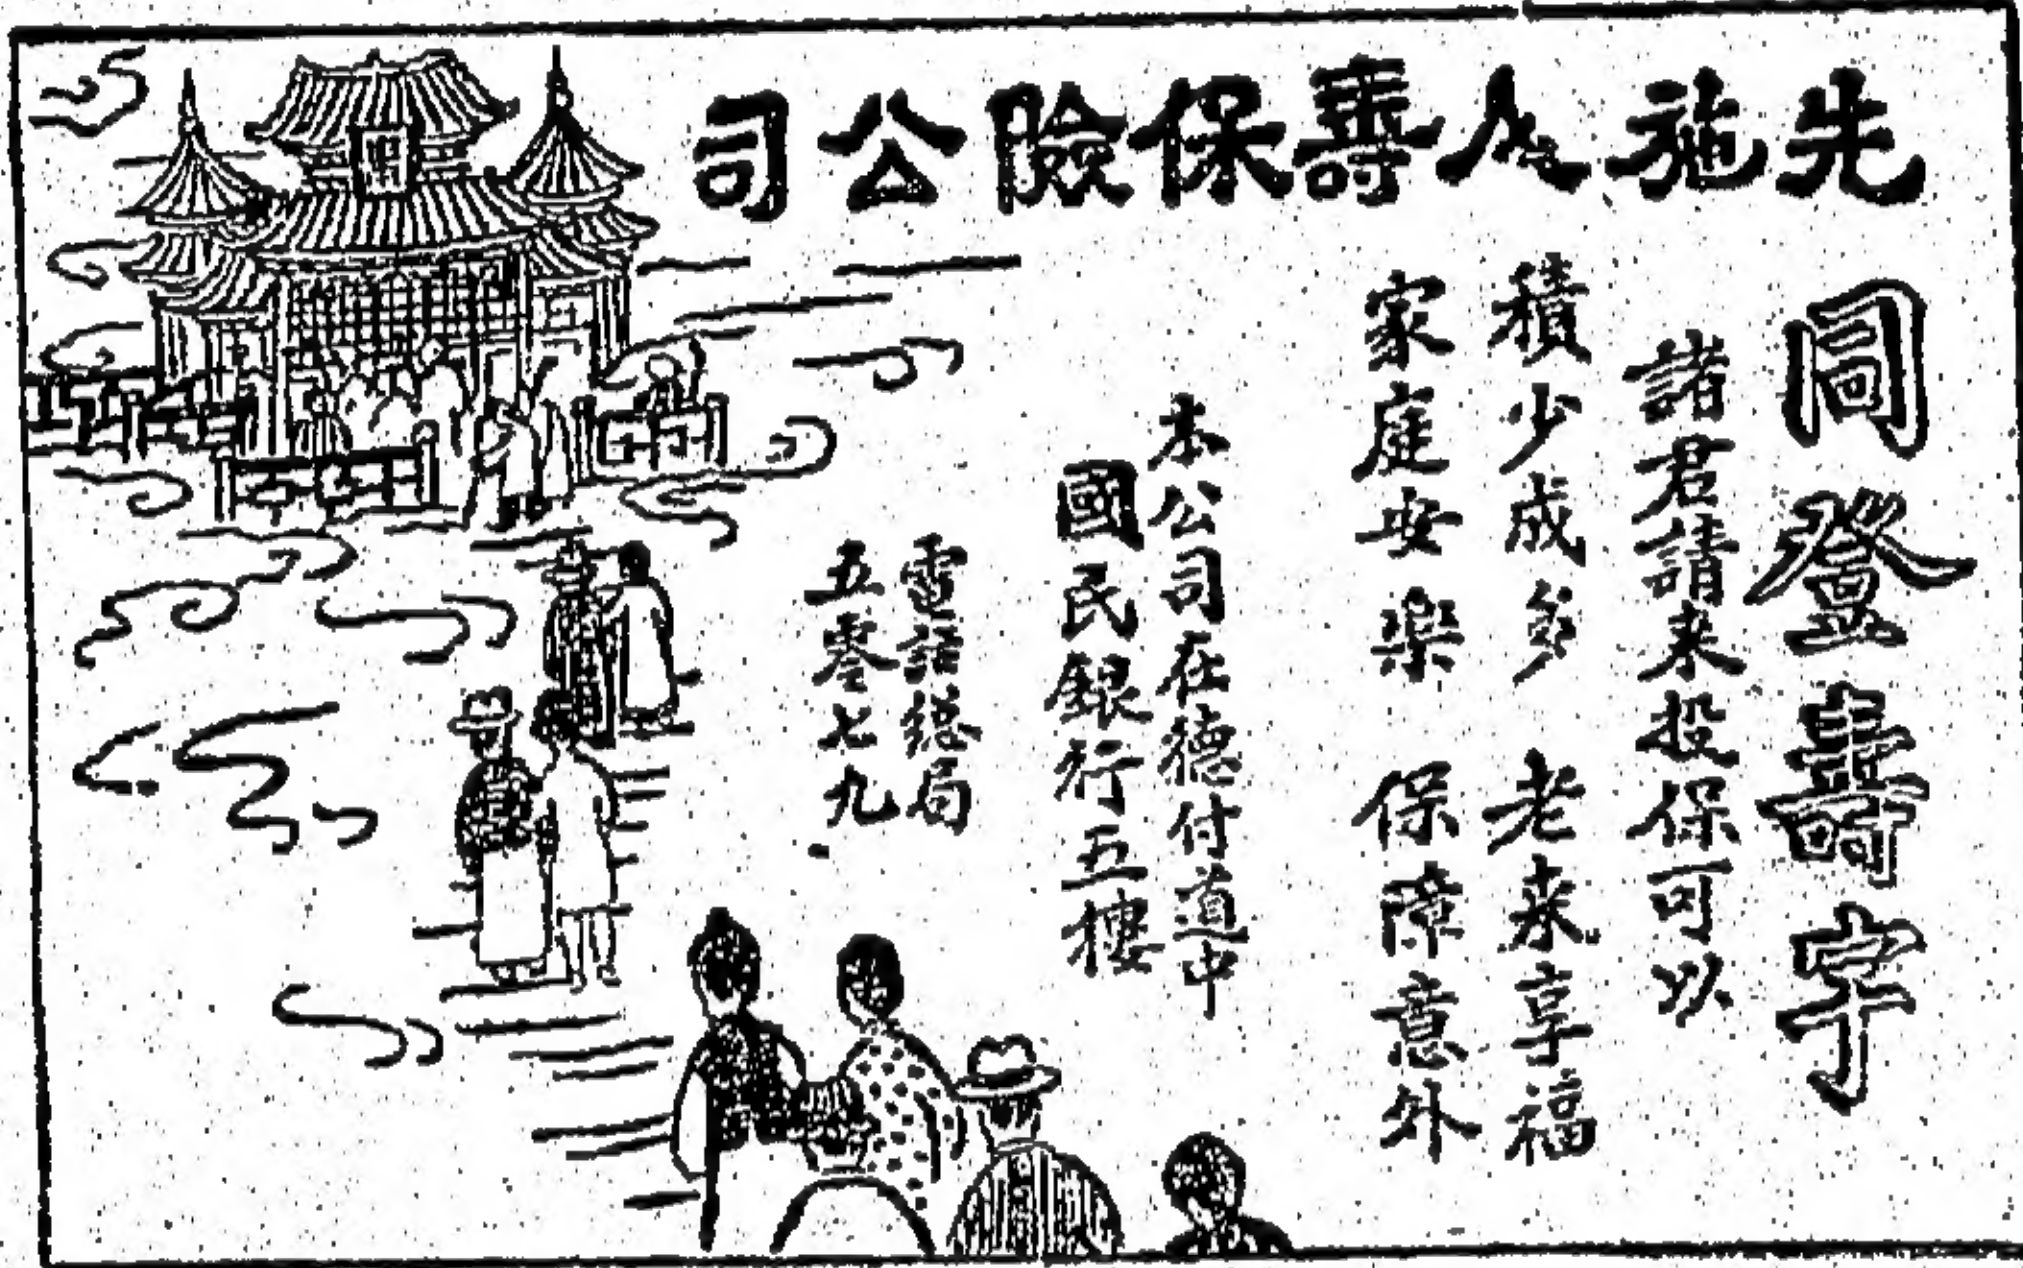 先施人壽保險公司
同登壽宇
諸君請來投保可以
積少成多 老來享福
家庭安樂 保障意外
本公司在德付道中
國民銀行五樓
電話総局
五零七九